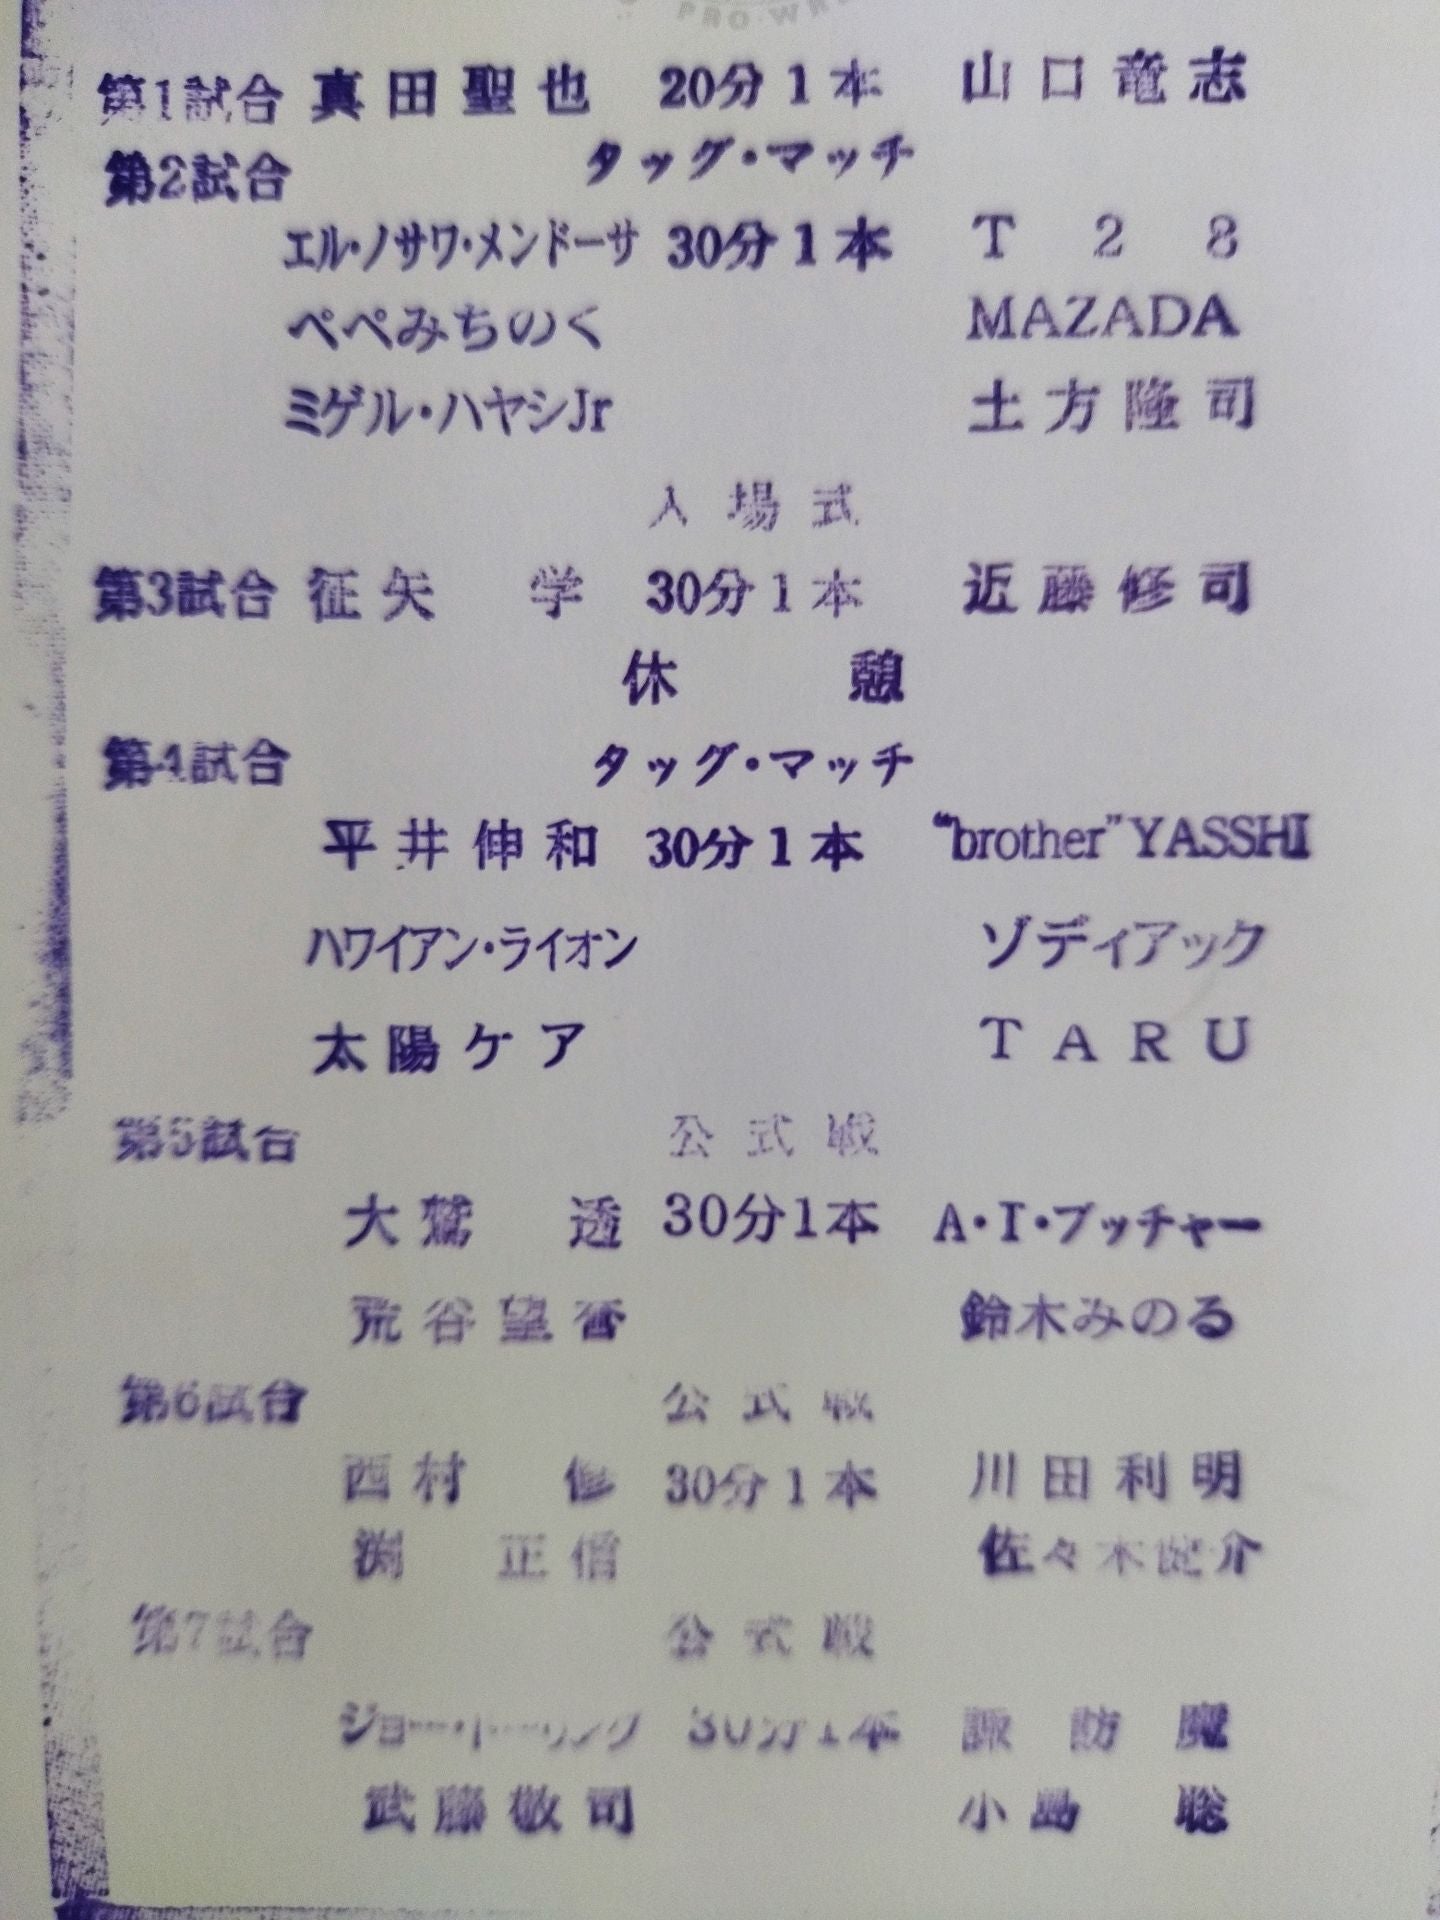 PRO WR
第1試合 真田聖也 20分1本 山口竜志
第2試合 タッグ・マッチ
エル・ノサワ・メンドーサ 30分1本 T28
ペペみちのく MAZADA
ミゲル・ハヤシJr 土方隆司
入場式
第3試合 征矢 学 30分1本 近藤修司
休憩
第4試合 タッグ・マッチ
平井伸和 30分1本 “brother”YASSHI
ハワイアン・ライオン ゾディアック
太陽ケア TARU
第5試合 公式戦
大鷲 透 30分1本 A・T・ブッチャー
荒谷望誉 鈴木みのる
第6試合 公式戦
西村 修 30分1本 川田利明
渕 正信 佐々木健介
第7試合 公式戦
ジョー・ドーリング 30分1本 諏訪魔
武藤敬司 小島 聡